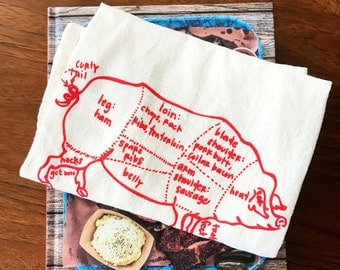 curly
tail
leg:
ham
loin:
chops, rack
ribs, tenterloin
blade
shoulder:
pork butt,
collar bacon
head
spare
ribs
belly
arm
shoulder:
sausage
hocks